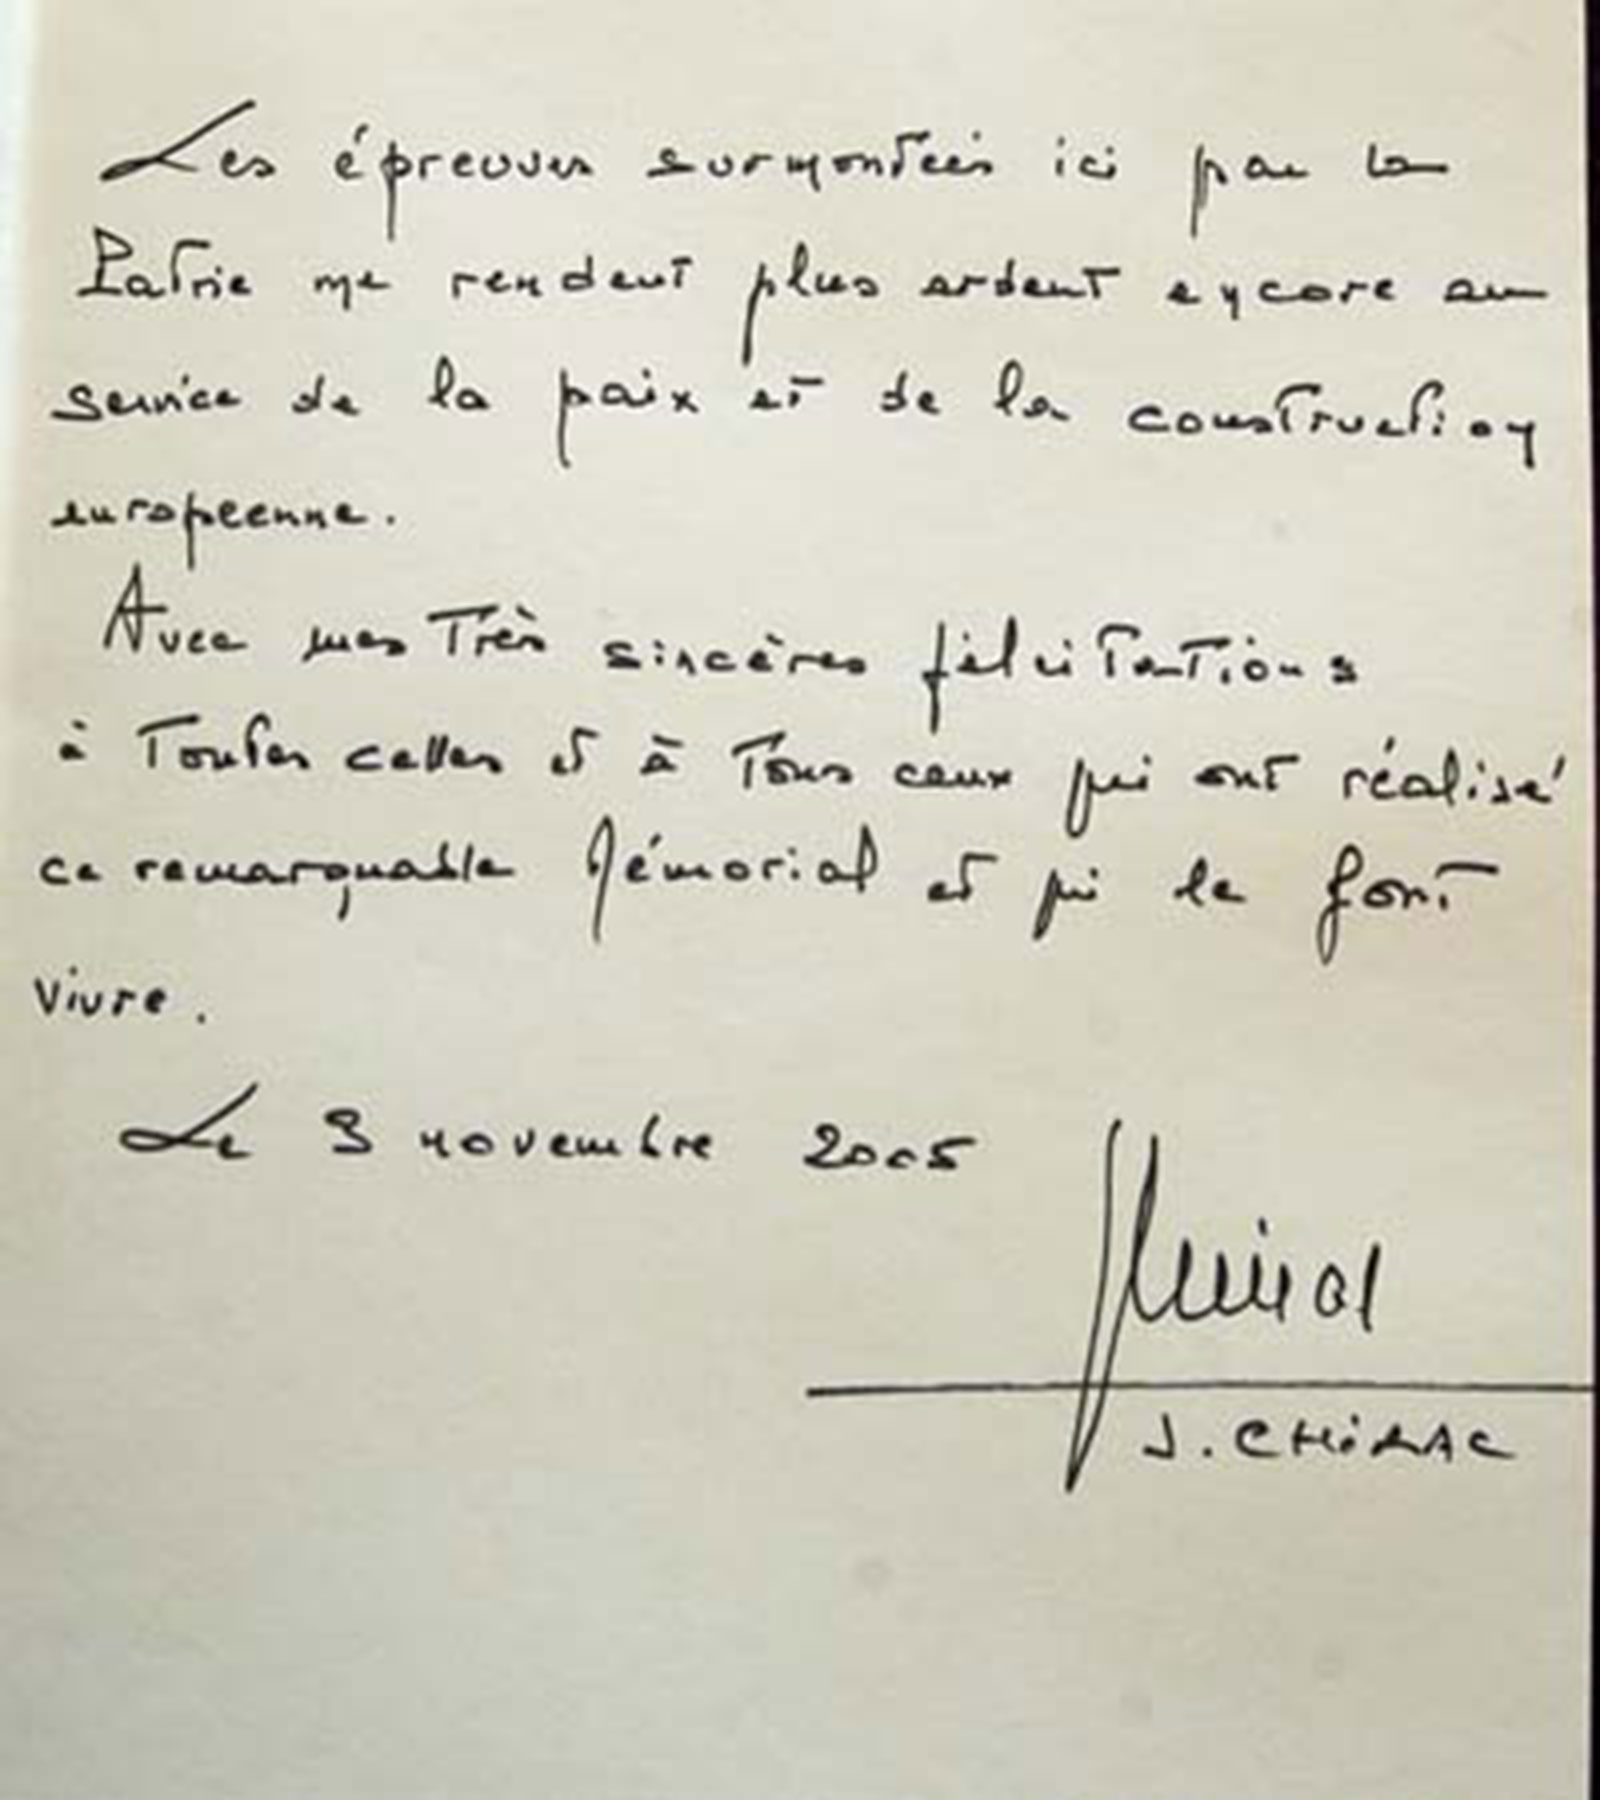 Les épreuves surmontées ici par la
Patrie me rendent plus ardent encore au
service de la paix et de la construction
européenne.
Avec mes très sincères félicitations
à toutes celles et à tous ceux qui ont réalisé
ce remarquable Mémorial et qui le font
vivre.
Le 3 novembre 2005
J. CHIRAC